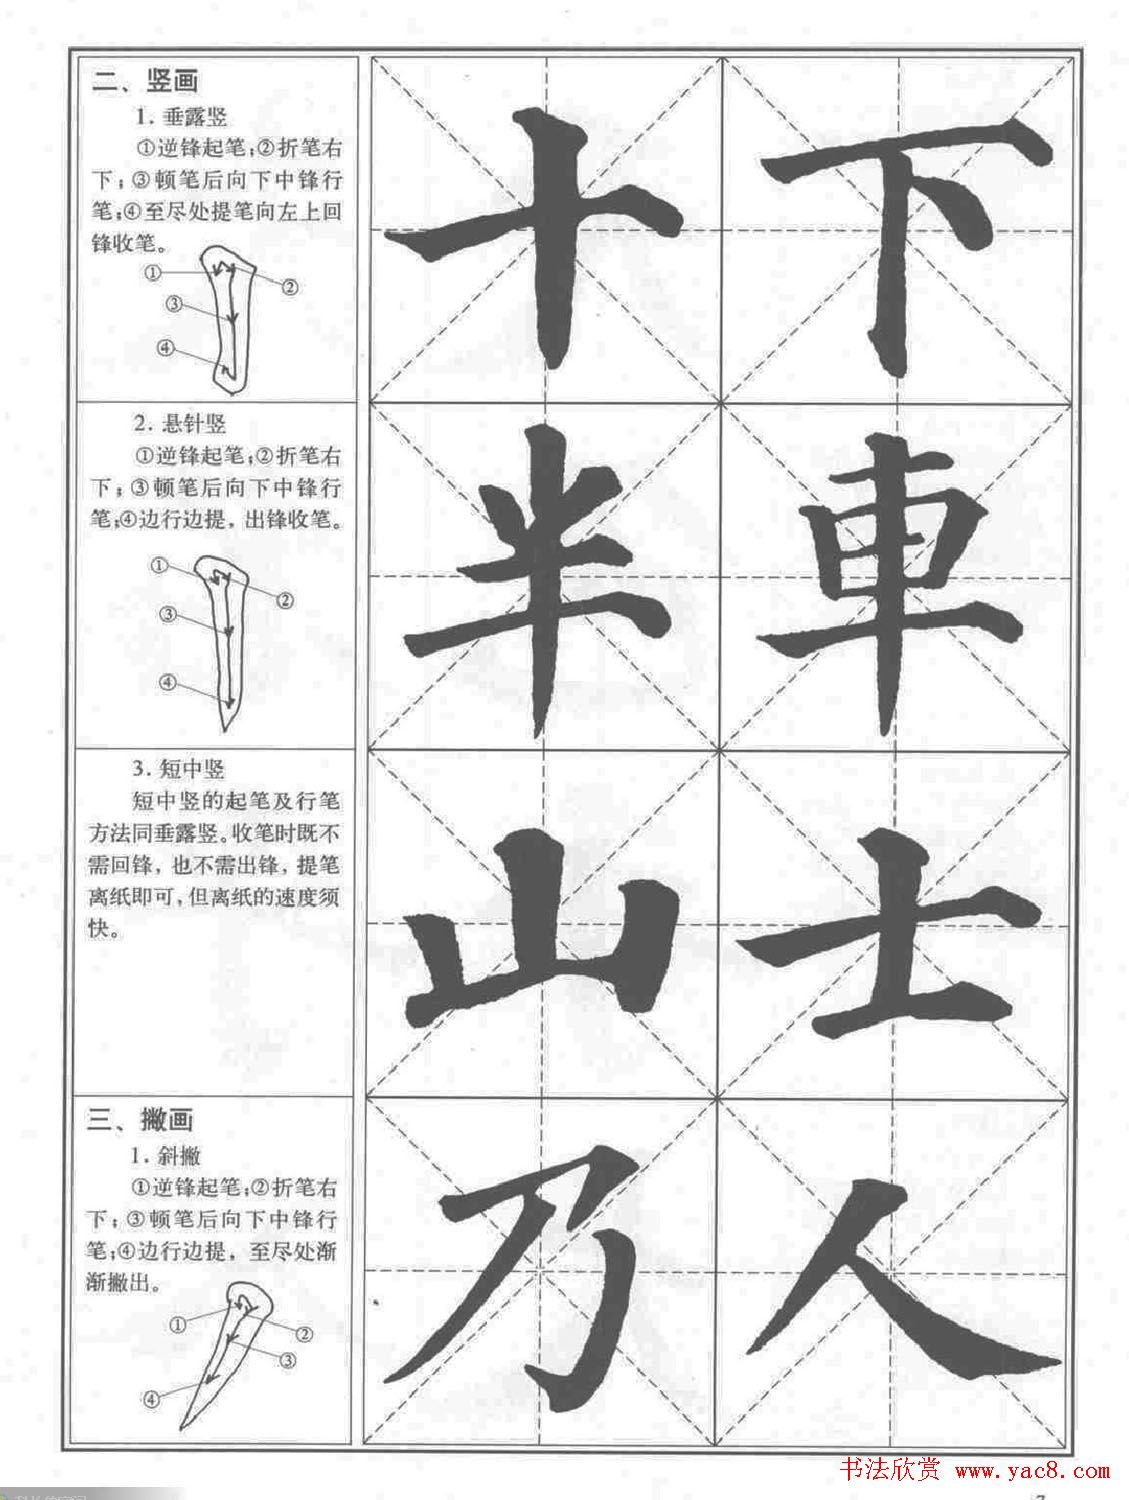 二、竖画
1. 垂露竖
①逆锋起笔；②折笔右
下；③顿笔后向下中锋行
笔；④至尽处提笔向左上回
锋收笔。
①
②
③
④
十 下
2. 悬针竖
①逆锋起笔；②折笔右
下；③顿笔后向下中锋行
笔；④边行边提，出锋收笔。
①
②
③
④
半 車
3. 短中竖
短中竖的起笔及行笔
方法同垂露竖。收笔时既不
需回锋，也不需出锋，提笔
离纸即可，但离纸的速度须
快。
山 士
三、撇画
1. 斜撇
①逆锋起笔；②折笔右
下；③顿笔后向下中锋行
笔；④边行边提，至尽处渐
渐撇出。
①
②
③
④
乃 人
书法欣赏 www.yac8.com